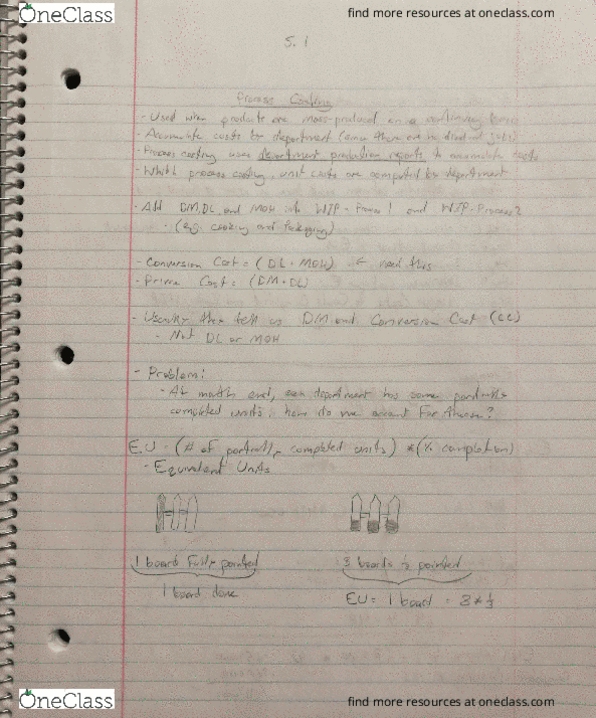 OneClass
find more resources at oneclass.com
5.1
Process Costing
- Used when products are mass-produced on a continuing basis
- Accumulate costs by department (since there are no distinct jobs)
- Process costing uses department production reports to accumulate costs
- While process costing, unit costs are computed by department
- All DM, DL, and MOH into WIP-Process 1 and WIP-Process 2
- (eg. cooking and packaging)
- Conversion Cost = (DL + MOH) ← need this
- Prime Cost = (DM + DL)
- Usually they tell us DM and Conversion Cost (CC)
- Not DL or MOH
- Problem!
- At month end, each department has some partially
completed units; how do we account for these?
E.U = (# of partially completed units) * (% completion)
- Equivalent Units
1 board fully painted
3 boards ⅓ painted
1 board done
EU = 1 board = 3 * ⅓
OneClass
find more resources at oneclass.com